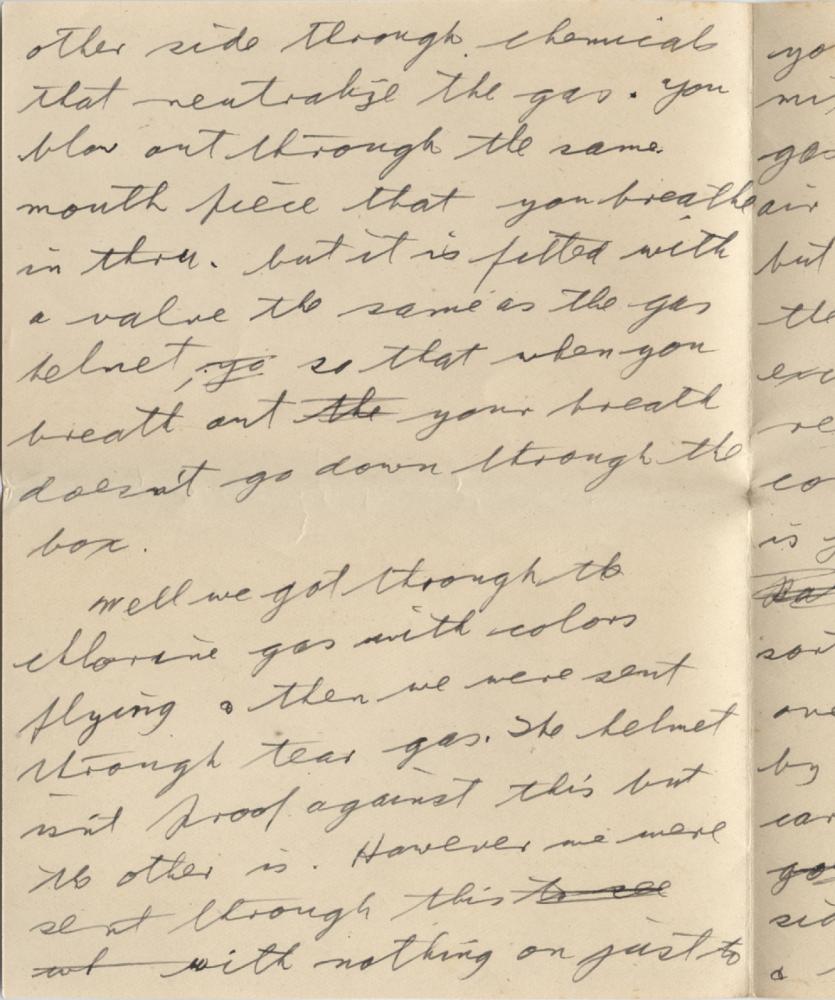 other side through chemicals
that neutralize the gas. You
blow out through the same
mouth piece that you breathe
in thru. but it is fitted with
a valve the same as the gas
helmet, yo so that when you
breath out the your breath
doesn't go down through the
box.
Well we got through the
chlorine gas with colors
flying & then we were sent
through tear gas. The helmet
isn't proof against this but
the other is. However we were
sent through this to see
wh with nothing on just to
yo
mi
gas
air
but
the
exc
re
co
is y
sor
ove
by
car
go
sid
&